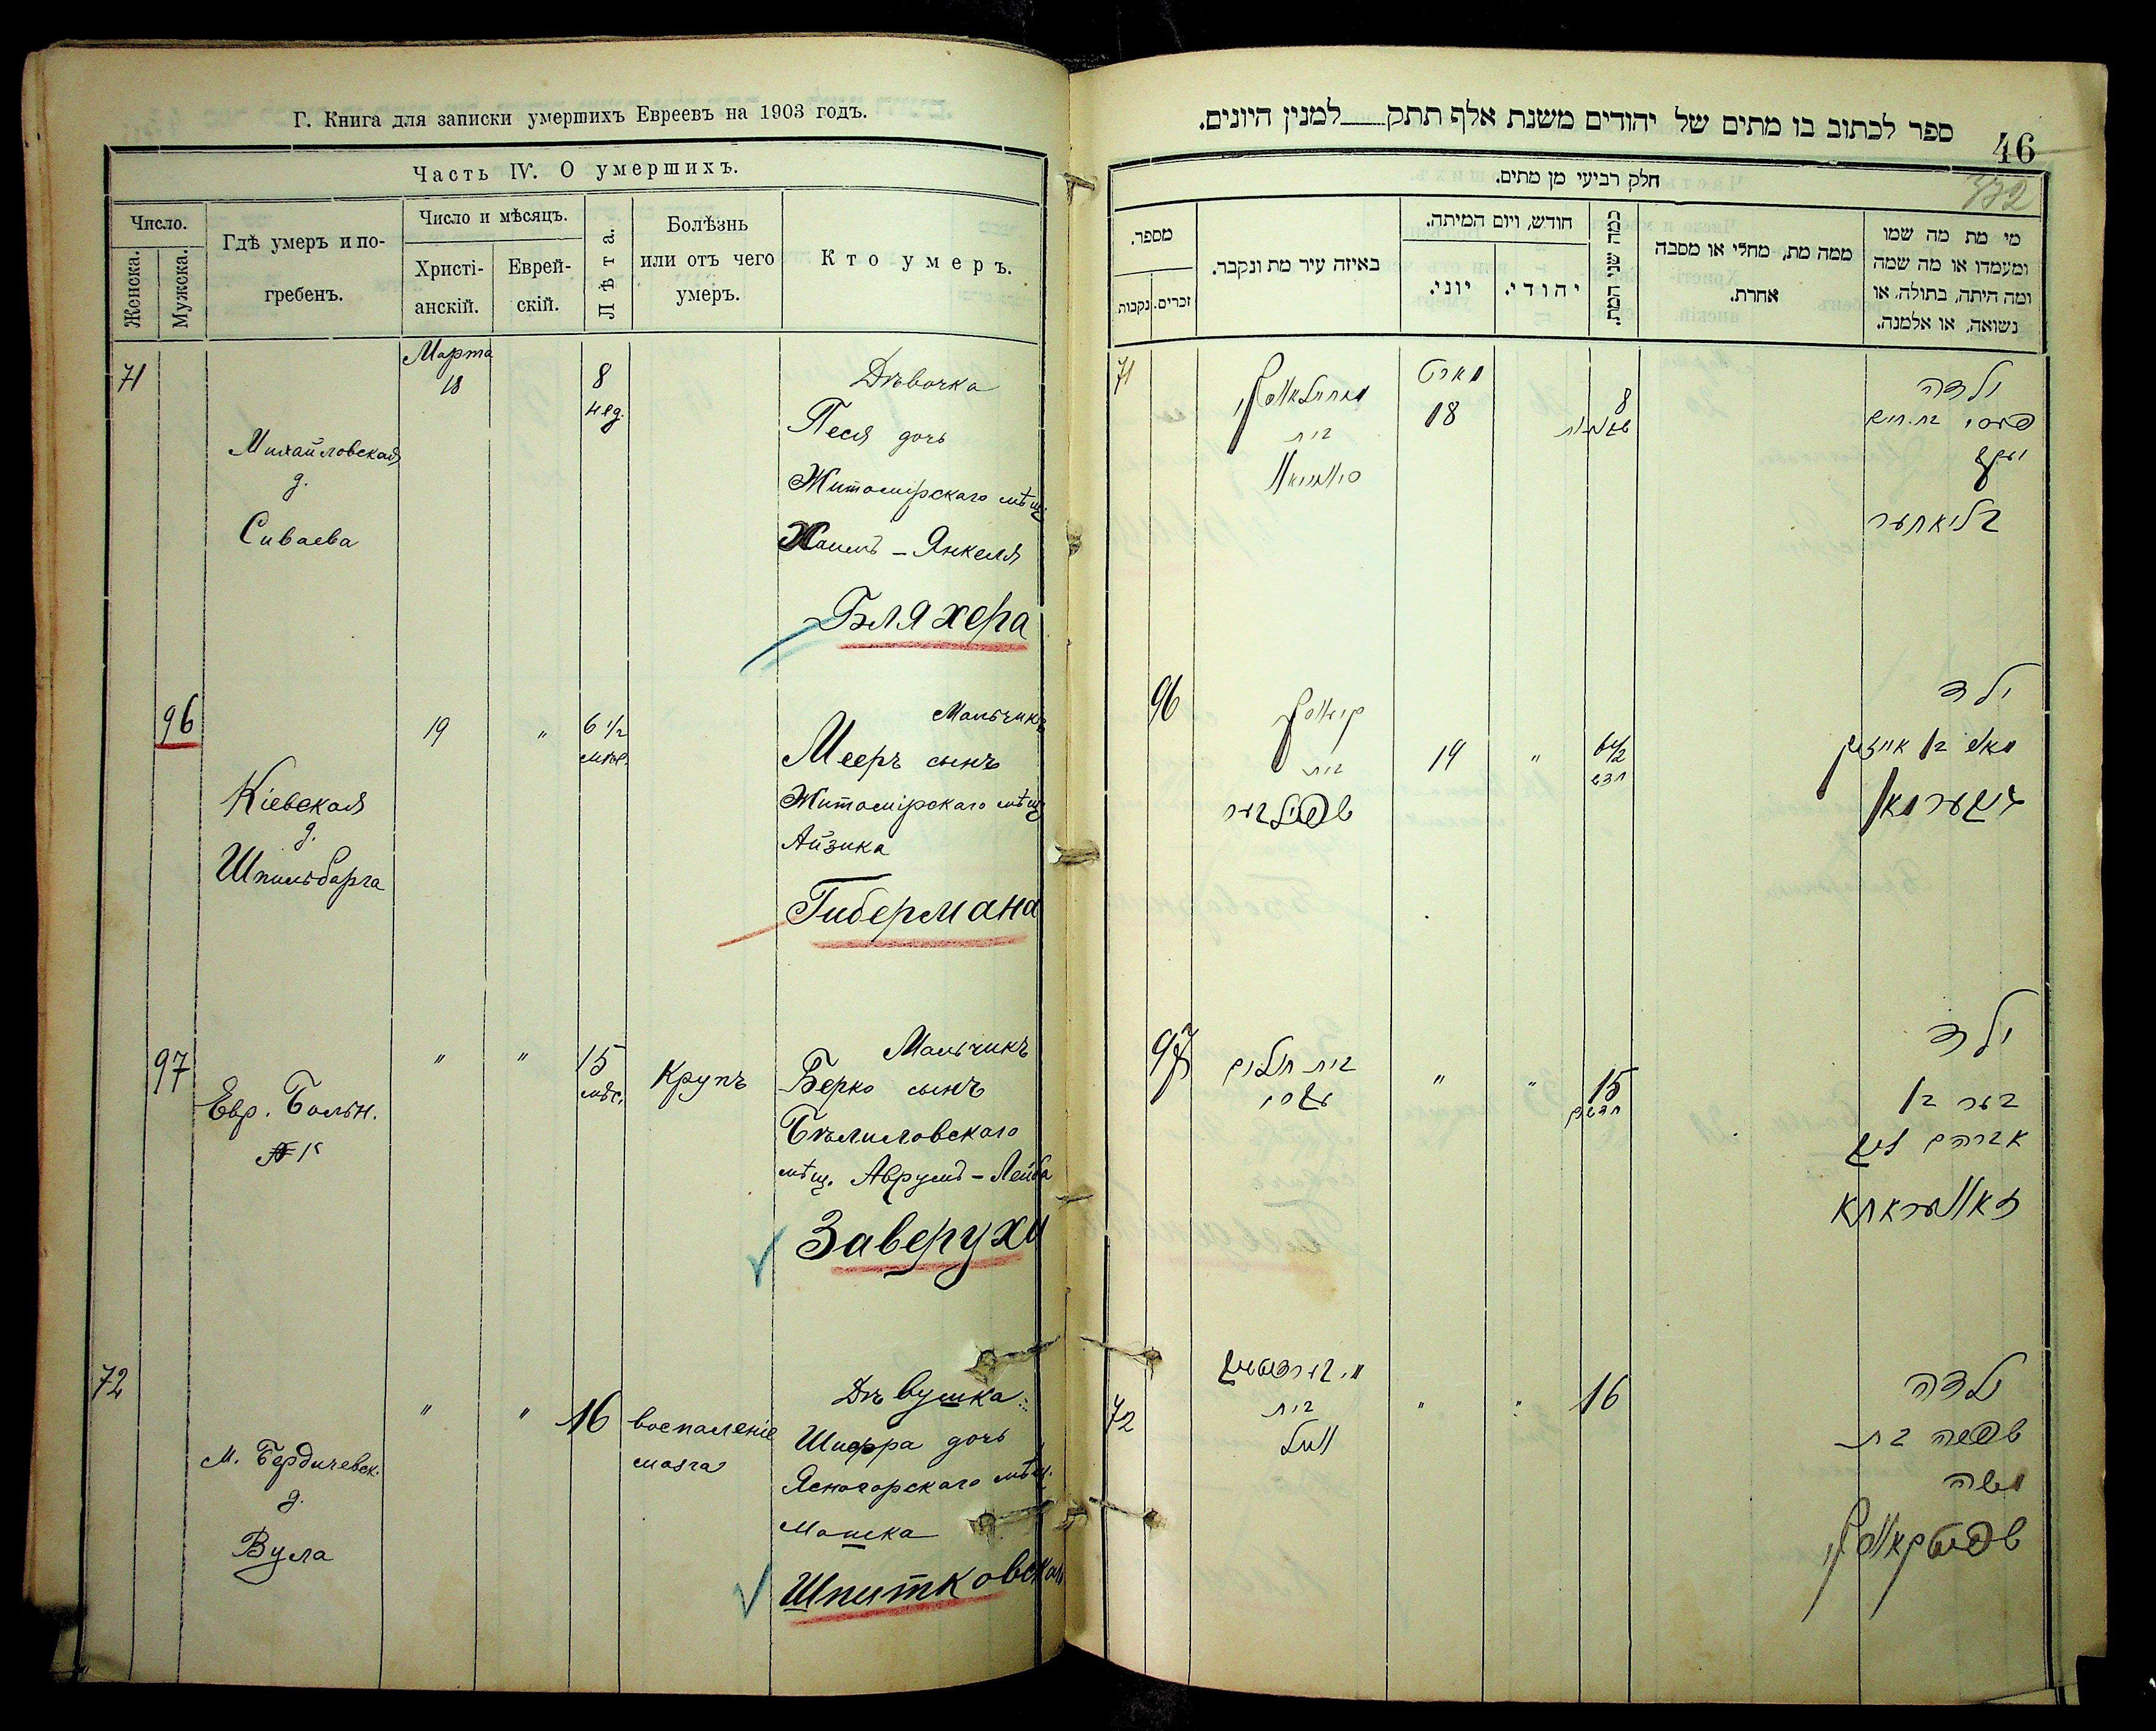 Г. Книга для записки умершихъ Евреевъ на 1903 годъ.
Часть IV. О умершихъ.
Число.
Женска.
Мужска.
Гдѣ умеръ и по-
гребенъ.
Число и мѣсяцъ.
Христі-
анскій.
Еврей-
скій.
Лѣта.
Болѣзнь
или отъ чего
умеръ.
Кто умеръ.
71
Михайловская
д.
Сиваева
Марта
18
8
нед.
Дѣвочка
Песя дочь
Житомірскаго мѣщ.
Хаимъ-Янкеля
Бляхера
96
Кіевская
д.
Шпильбарга
19
"
6 1/2
мѣс.
Мальчикъ
Мееръ сынъ
Житомірскаго мѣщ
Айзика
Гибермана
97
Евр. Больн.
"
"
15
мѣс.
Крупъ
Мальчикъ
Берко сынъ
Бѣлиловскаго
мѣщ. Аврумъ-Лейба
Заверухи
72
М. Бердичевск.
д.
Вула
"
"
16
воспаленіе
мозга
Дѣвушка
Шифра дочь
Ясногорскаго мѣщ.
Мошка
Шпитковская
46
ספר לכתוב בו מתים של יהודים משנת אלף תתק למנין היונים.
חלק רביעי מן מתים.
מספר.
נקבות.
זכרים.
באיזה עיר מת ונקבר.
חודש, ויום המיתה.
יוני.
יהודי.
כמה שני המת.
ממה מת, מחלי או מסבה
אחרת.
מי מת מה שמו
ומעמדו או מה שמה
ומה היתה, בתולה, או
נשואה, או אלמנה.
71
בית
מארט
18
8
ילדה
פעסי בת חיים
יעקב
בליאחער
96
בית
19
"
6 1/2
חדש
ילד
מאיר בן אייזיק
גיבערמאן
97
בית חולים
עברי
"
"
15
חדשים
ילד
בער בן
אברהם ליב
זאווערוחא
72
בית
וואול
"
"
16
ילדה
שפרה בת
משה
שפיטקאווסקי